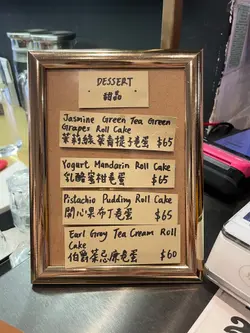 DESSERT
甜品
Jasmine Green Tea Green
Grapes Roll Cake
茉莉綠茶青提子卷蛋 $65
Yogurt Mandarin Roll Cake
乳酪蜜柑卷蛋 $65
Pistachio Pudding Roll Cake
開心果布丁卷蛋 $65
Earl Grey Tea Cream Roll
Cake
伯爵茶忌廉卷蛋 $60